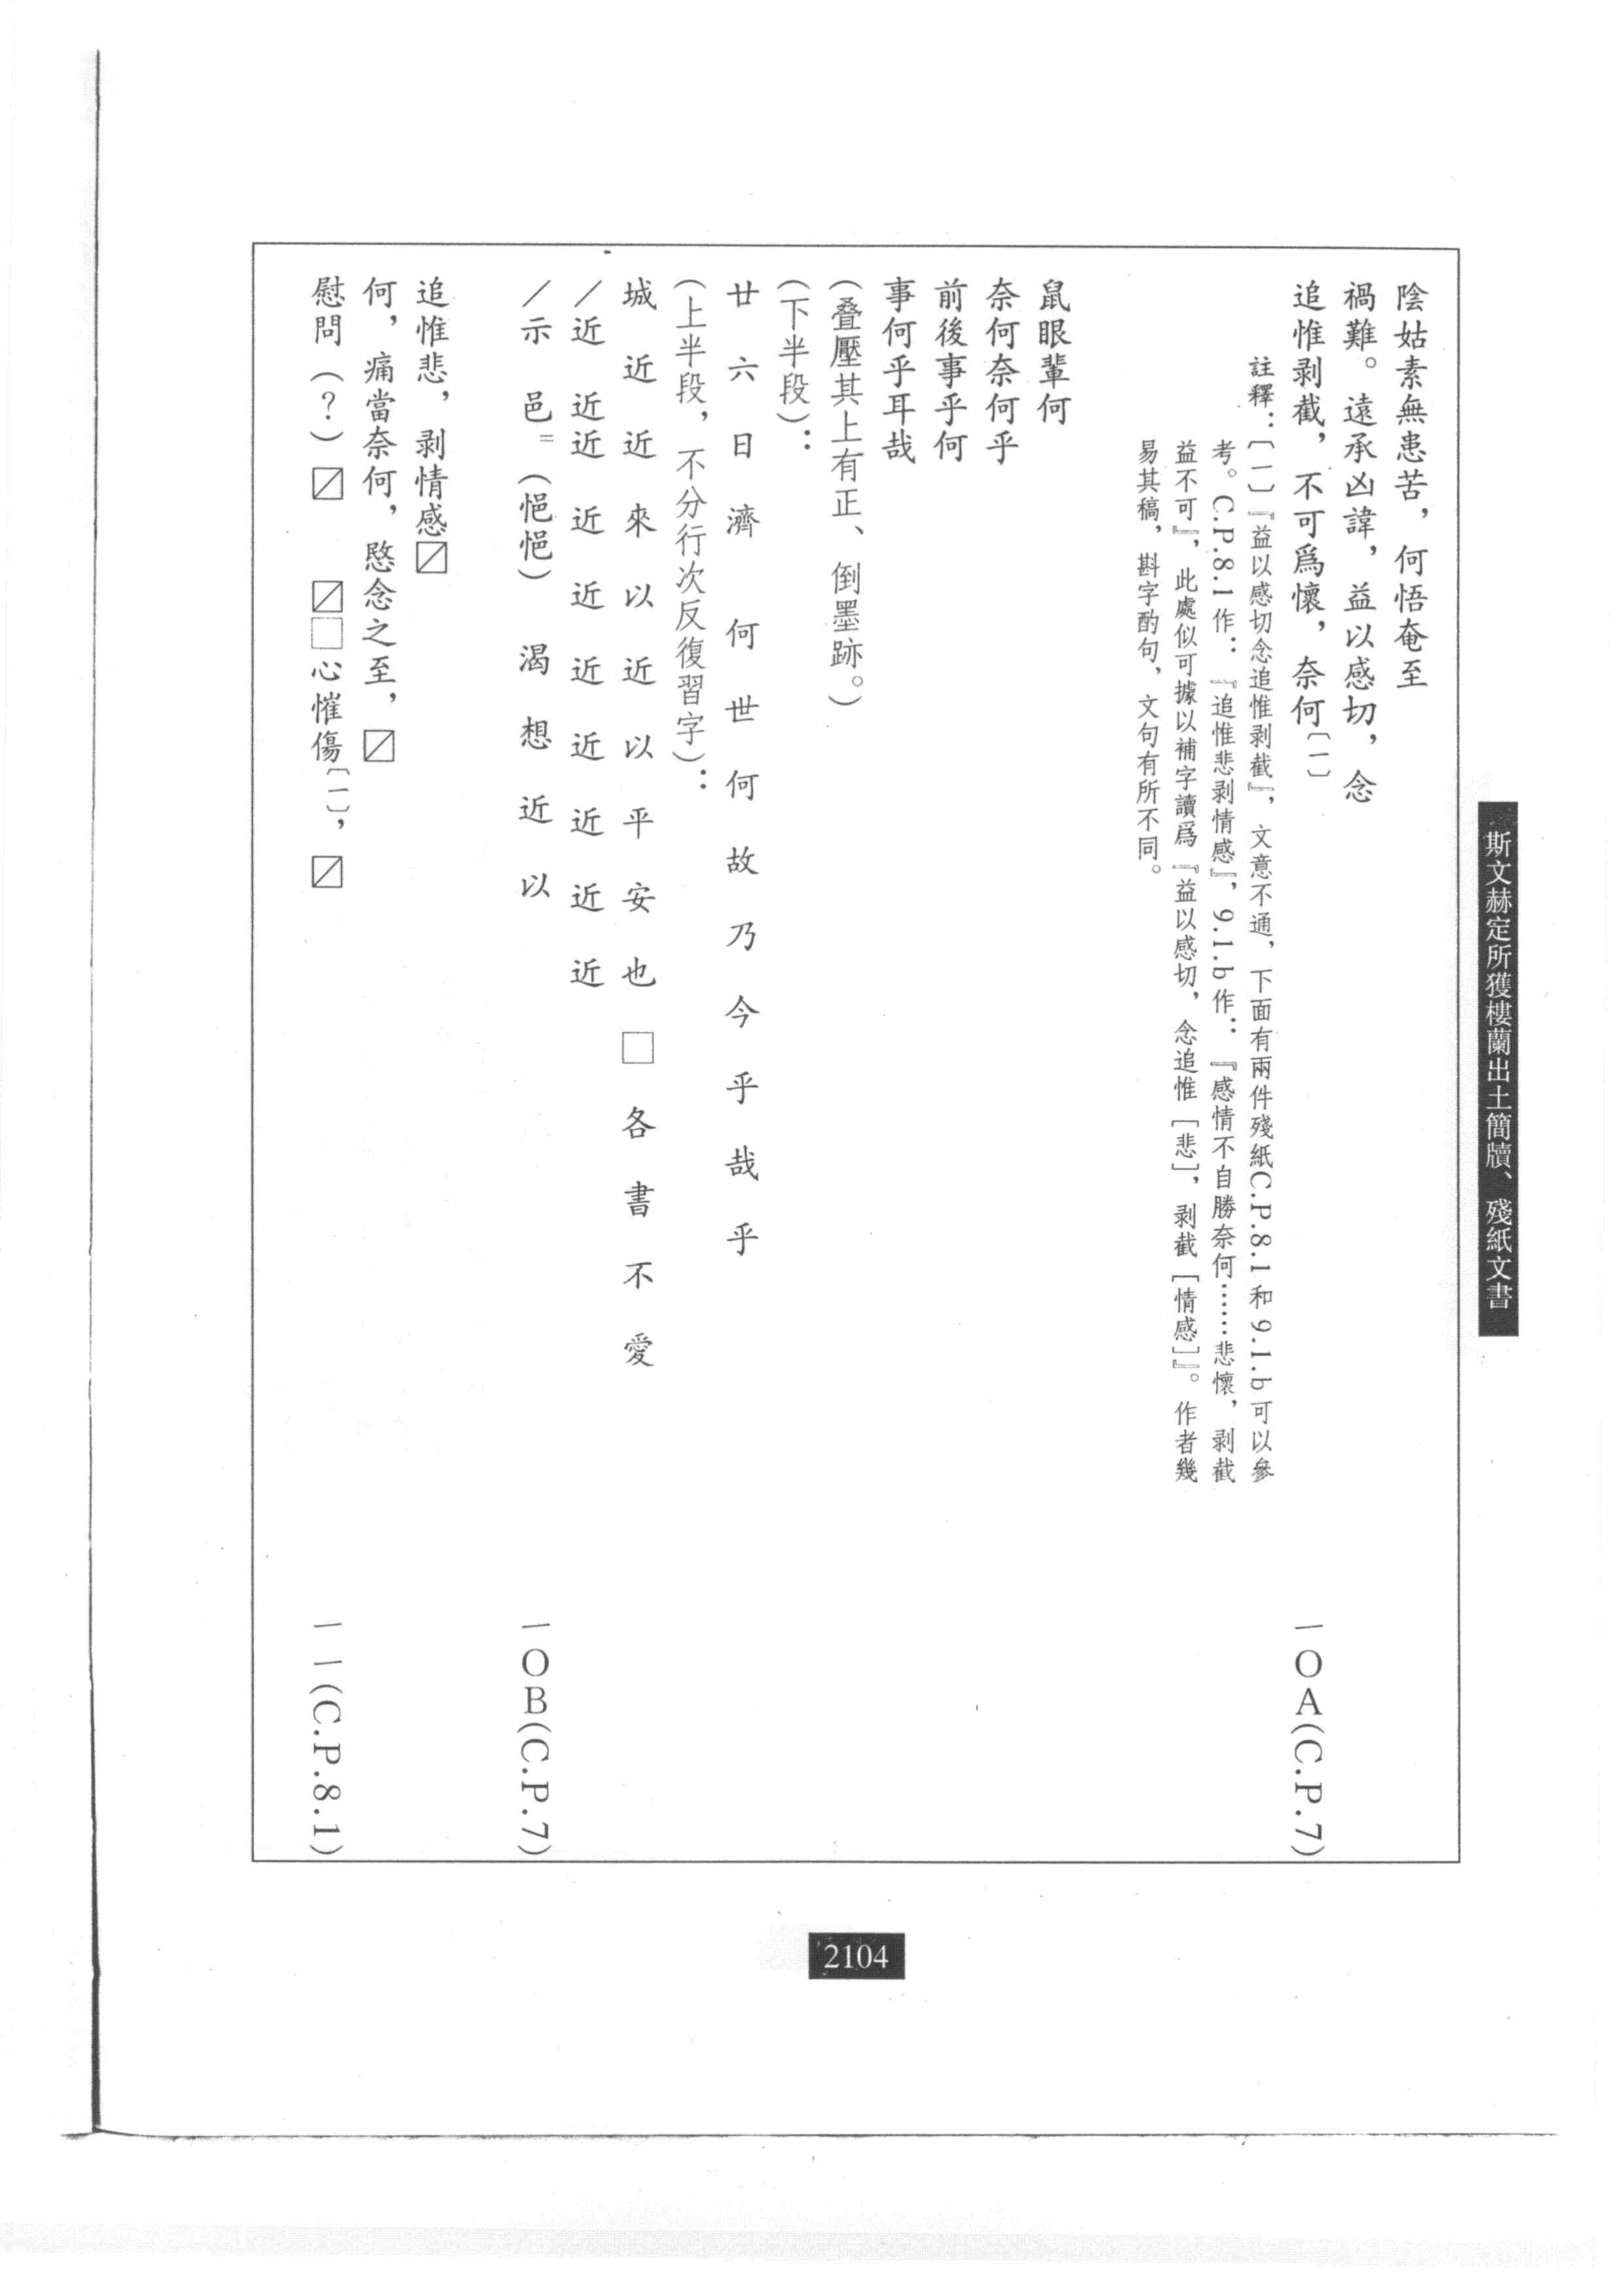 斯文赫定所獲樓蘭出土簡牘、殘紙文書
陰姑素無患苦，何悟奄至
禍難。遠承凶諱，益以感切，念
追惟剥截，不可爲懷，奈何〔一〕
一〇A(C.P.7)
註釋：〔一〕『益以感切念追惟剥截』，文意不通，下面有兩件殘紙C.P.8.1和9.1.b可以參
考。C.P.8.1作：『追惟悲剥情感』，9.1.b作：『感情不自勝奈何……悲懷，剥截
益不可』，此處似可據以補字讀爲『益以感切，念追惟［悲］，剥截［情感］』。作者幾
易其稿，斟字酌句，文句有所不同。
鼠眼輩何
奈何奈何乎
前後事乎何
事何乎耳哉
（叠壓其上有正、倒墨跡。）
（下半段）：
廿六日濟何世何故乃今乎哉乎
（上半段，不分行次反復習字）：
城近近來以近以平安也□各書不愛
/近近近近近近近近近近
/示邑=（悒悒）渴想近以
一〇B(C.P.7)
追惟悲，剥情感☑
何，痛當奈何，愍念之至，☑
慰問（?）☑　☑□心慛傷〔一〕，☑
一一(C.P.8.1)
2104